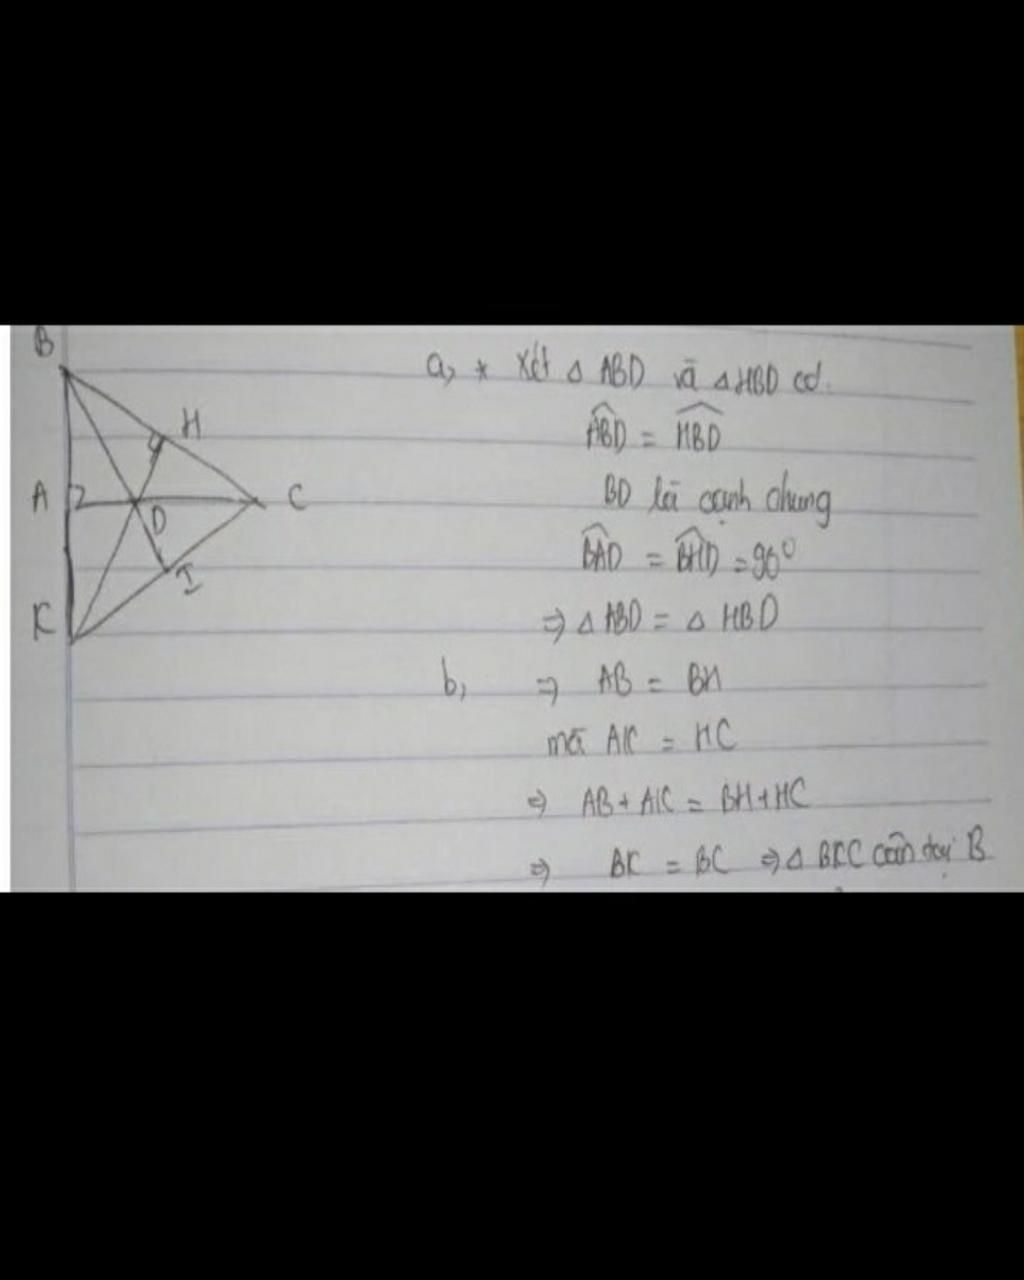 B
H
A
C
D
I
K
a, * Xét △ ABD và △ HBD có.
ABD = HBD
BD là cạnh chung
BAD = BHD = 90°
⇒ △ ABD = △ HBD
b, ⇒ AB = BH
mà AK = HC
⇒ AB + AK = BH + HC
⇒ BK = BC ⇒ △ BKC cân tại B